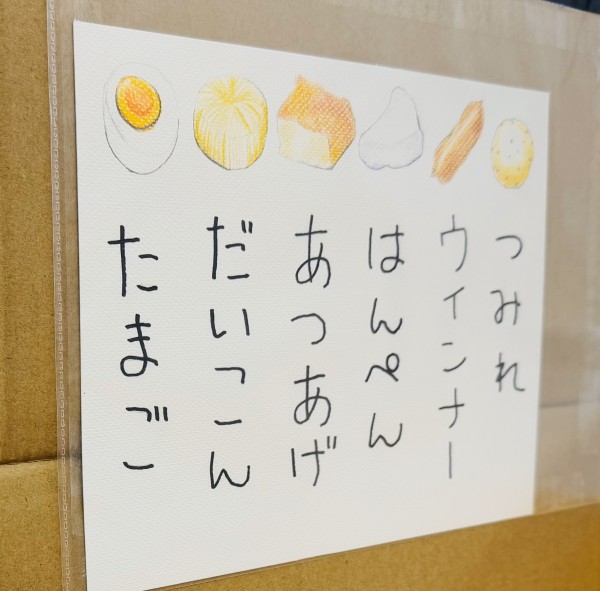 つみれ
ウインナー
はんぺん
あつあげ
だいこん
たまご